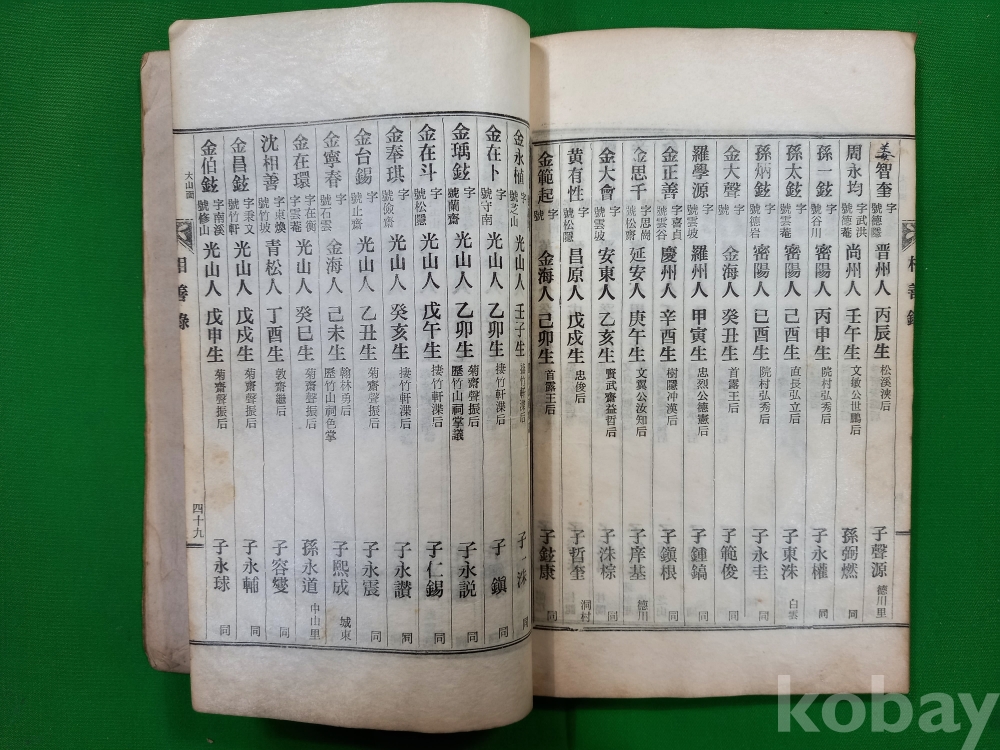 姜智奎 字 號德隱 晋州人 丙辰生 松溪浹后 子聲源 德川里
周永均 字武洪 號德菴 尚州人 壬午生 文敏公世鵬后 孫弼燃 同
孫一鉉 字 號谷川 密陽人 丙申生 院村弘秀后 子永權 同
孫太鉉 字 號雲菴 密陽人 己酉生 直長弘立后 子東洙 白雲
孫炳鉉 字 號德岩 密陽人 己酉生 院村弘秀后 子永圭 同
金大聲 字 金海人 癸丑生 首露王后 子範俊 同
羅學源 字 號雲坡 羅州人 甲寅生 忠烈公德憲后 子鍾鎬 同
金正善 字喜貞 號雲谷 慶州人 辛酉生 樹隱冲漢后 子鎭根 同
金思千 字思尚 號松齋 延安人 庚午生 文翼公汝知后 子岸基 德川
金大會 字 號雲坡 安東人 乙亥生 賢武齋益哲后 子洙棕 同
黄有性 字 號松隱 昌原人 戊戍生 忠俊后 子哲奎 洞村
金範起 字 號 金海人 己卯生 首露王后 子鉉康 同
相善錄
金永植 字 號芝山 光山人 壬子生 接竹軒濼后 子一洙 同
金在卜 字 號守南 光山人 乙卯生 接竹軒濼后 子鎭 同
金瑀鉉 字 號蘭齋 光山人 乙卯生 菊齋聲振后 歷竹山祠掌議 子永説 同
金在斗 字 號松隱 光山人 戊午生 接竹軒濼后 子仁錫 同
金奉琪 字 號儉齋 光山人 癸亥生 接竹軒濼后 子永讚 同
金台錫 字 號止齋 光山人 乙丑生 菊齋聲振后 子永震 同
金寧春 字 號石雲 金海人 己未生 翰林勇后 歷竹山祠色掌 子熙成 城東
金在環 字在衡 字雲菴 光山人 癸巳生 菊齋聲振后 孫永道 中山里
沈相善 字東煥 號竹坡 青松人 丁酉生 敦齋繼后 子容燮 同
金昌鉉 字秉文 號竹軒 光山人 戊戍生 菊齋聲振后 子永輔 同
金伯鉉 字南溪 號修山 光山人 戊申生 菊齋聲振后 子永球 同
大山面
相善錄
四十九
kobay